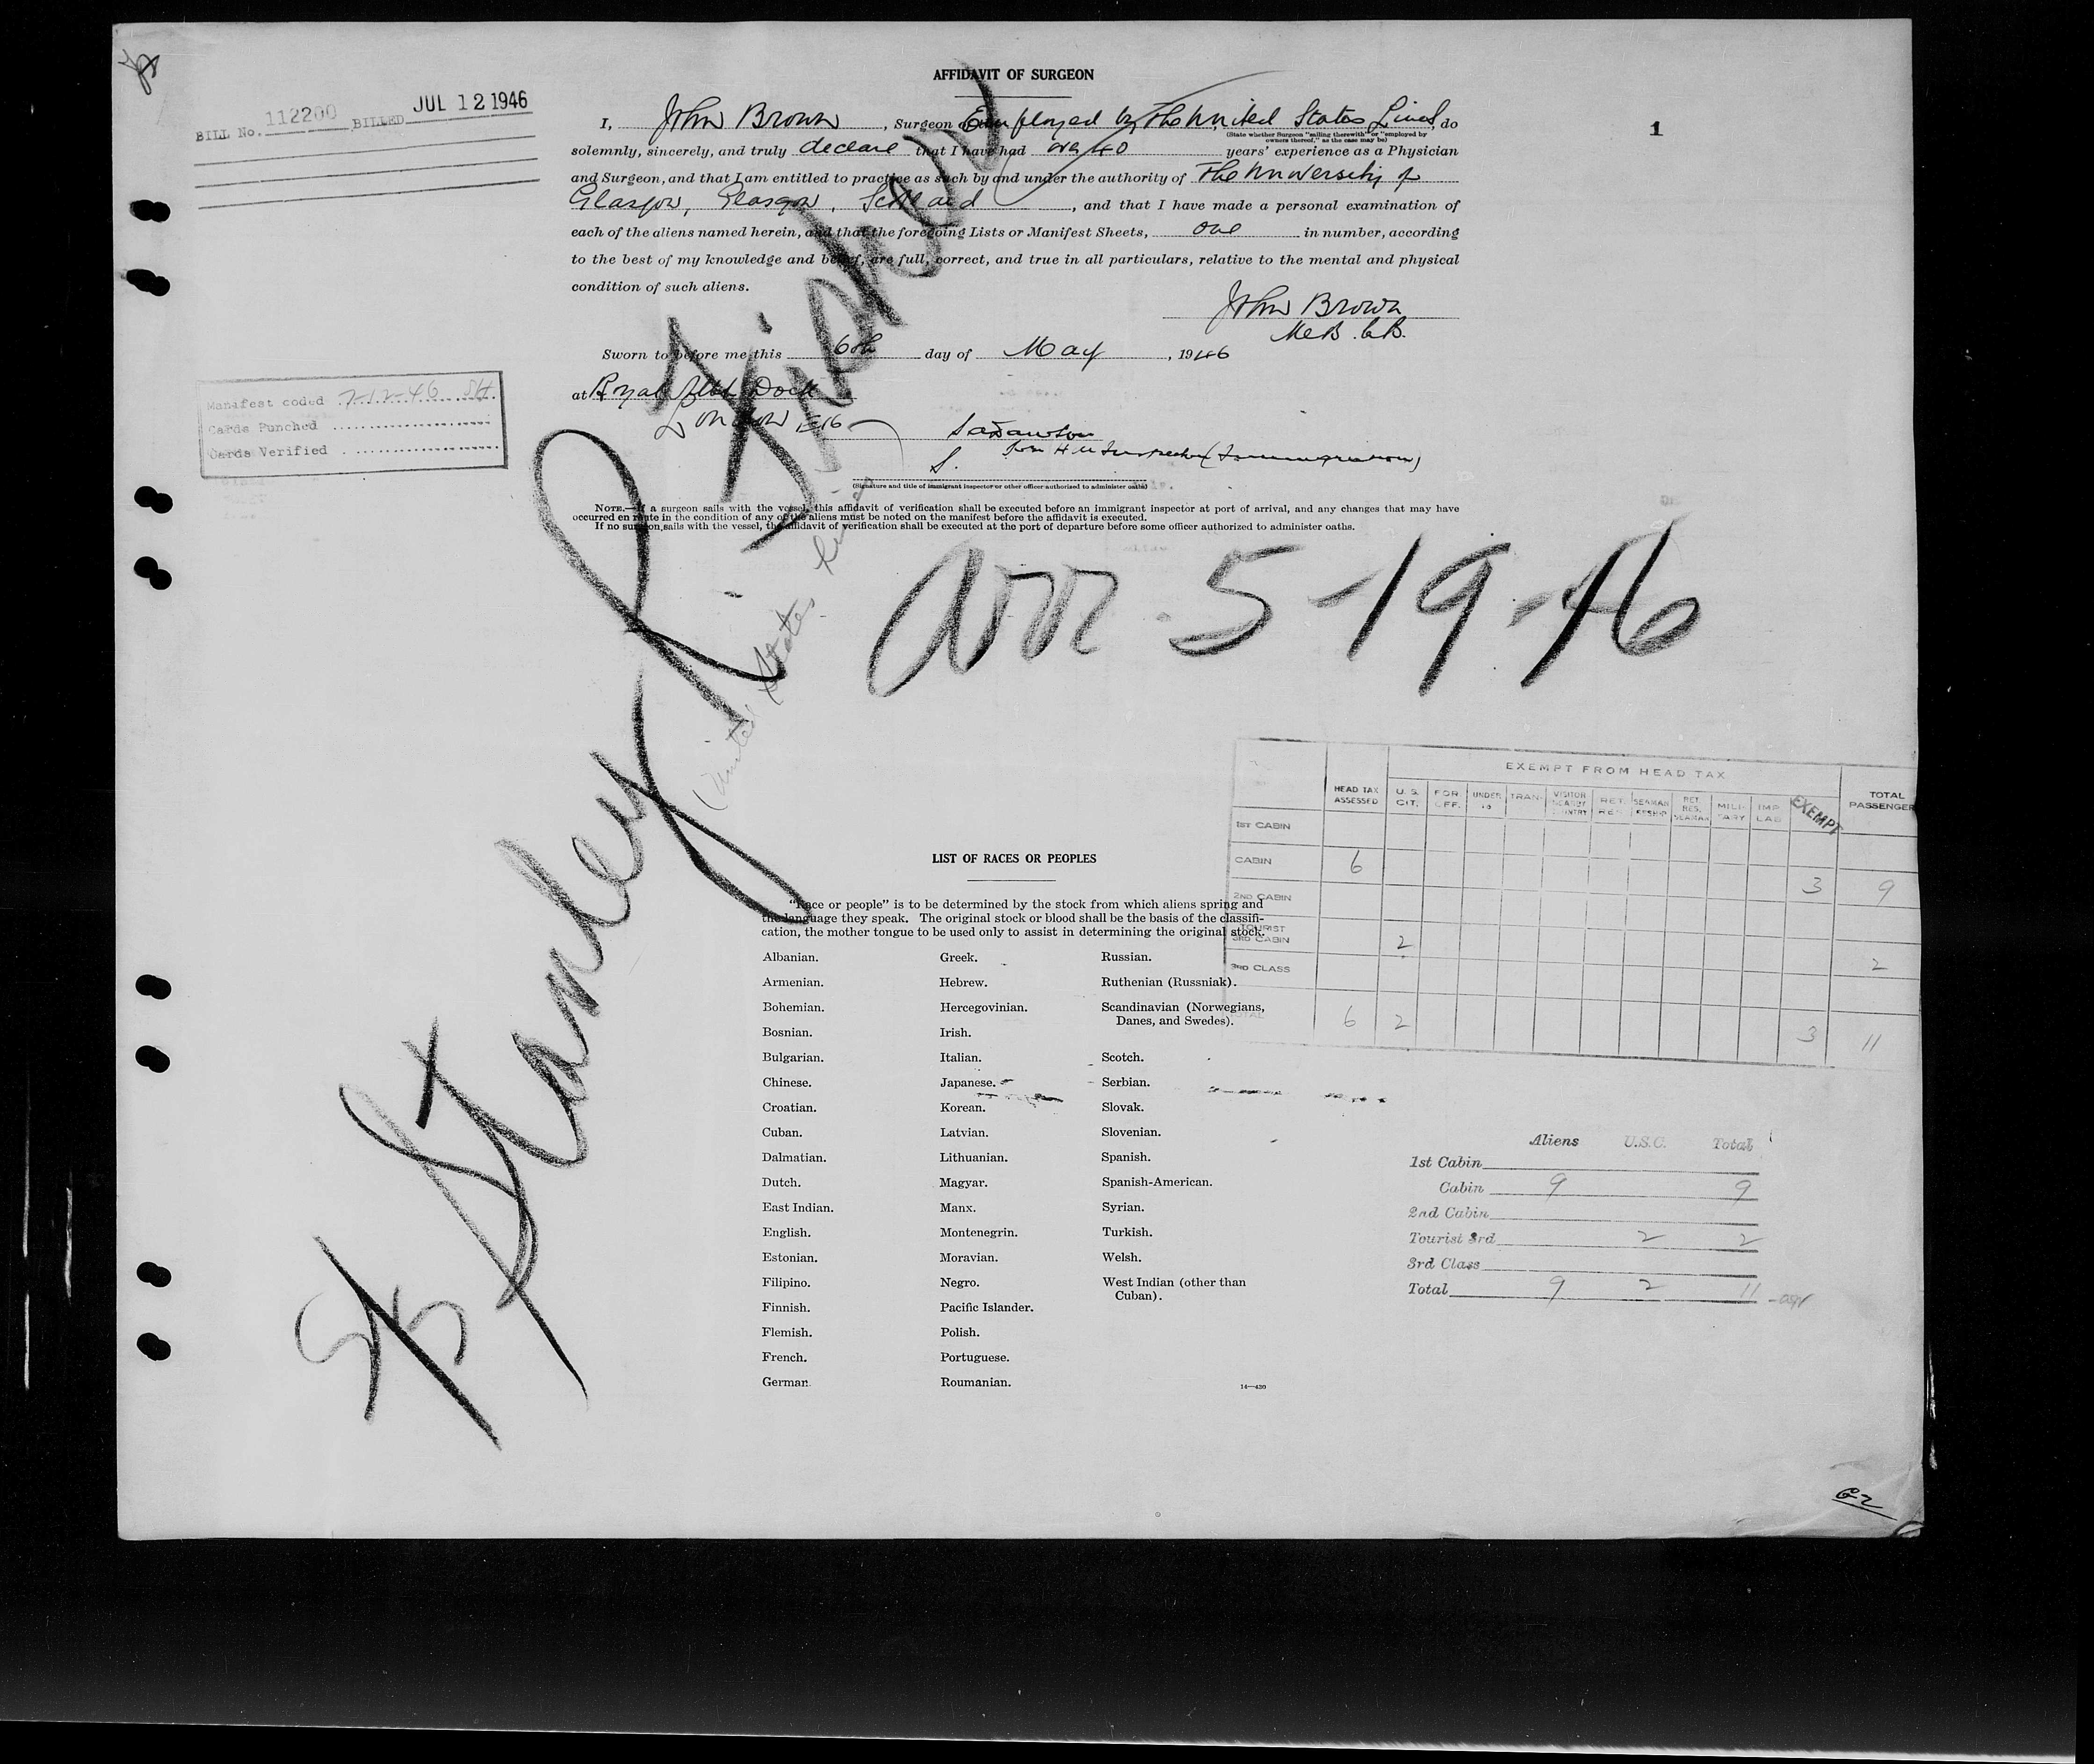 AFFIDAVIT OF SURGEON
BILL No. 112200 BILLED JUL 12 1946
1
I, John Brown, Surgeon Employed by The United States Lines, do
(State whether Surgeon "sailing therewith" or "employed by
owners thereof," as the case may be)
solemnly, sincerely, and truly declare that I have had over 40 years' experience as a Physician
and Surgeon, and that I am entitled to practice as such by and under the authority of The University of
Glasgow, Glasgow, Scotland, and that I have made a personal examination of
each of the aliens named herein, and that the foregoing Lists or Manifest Sheets, one in number, according
to the best of my knowledge and belief, are full, correct, and true in all particulars, relative to the mental and physical
condition of such aliens.
John Brown
M.B. Ch.B.
Sworn to before me this 6th day of May, 1946
at Royal Albt Dock
London E16
Manifest coded 7-12-46 SH
Cards Punched
Cards Verified
(Signature and title of immigrant inspector or other officer authorized to administer oaths)
NOTE.—If a surgeon sails with the vessel, this affidavit of verification shall be executed before an immigrant inspector at port of arrival, and any changes that may have
occurred en route in the condition of any of the aliens must be noted on the manifest before the affidavit is executed.
If no surgeon sails with the vessel, the affidavit of verification shall be executed at the port of departure before some officer authorized to administer oaths.
SS Stanley R Fisher
(United States Lines
arr. 5-19-46
EXEMPT FROM HEAD TAX
HEAD TAX ASSESSED U.S. CIT. FOR. OFF. UNDER 16 TRAN. VISITOR NEARBY COUNTRY RET. RES. SEAMAN RESHIP RET. RES. SEAMAN MILI-TARY IMP LAB EXEMPT TOTAL PASSENGER
1ST CABIN
CABIN 6 3 9
2ND CABIN
TOURIST
3RD CABIN 2 2
3RD CLASS
TOTAL 6 2 3 11
LIST OF RACES OR PEOPLES
"Race or people" is to be determined by the stock from which aliens spring and
the language they speak. The original stock or blood shall be the basis of the classifi-
cation, the mother tongue to be used only to assist in determining the original stock.
Albanian.
Armenian.
Bohemian.
Bosnian.
Bulgarian.
Chinese.
Croatian.
Cuban.
Dalmatian.
Dutch.
East Indian.
English.
Estonian.
Filipino.
Finnish.
Flemish.
French.
German.
Greek.
Hebrew.
Hercegovinian.
Irish.
Italian.
Japanese.
Korean.
Latvian.
Lithuanian.
Magyar.
Manx.
Montenegrin.
Moravian.
Negro.
Pacific Islander.
Polish.
Portuguese.
Roumanian.
Russian.
Ruthenian (Russniak).
Scandinavian (Norwegians,
Danes, and Swedes).
Scotch.
Serbian.
Slovak.
Slovenian.
Spanish.
Spanish-American.
Syrian.
Turkish.
Welsh.
West Indian (other than
Cuban).
14—430
Aliens U.S.C. Total
1st Cabin
Cabin 9 9
2nd Cabin
Tourist 3rd 2 2
3rd Class
Total 9 2 11
G2